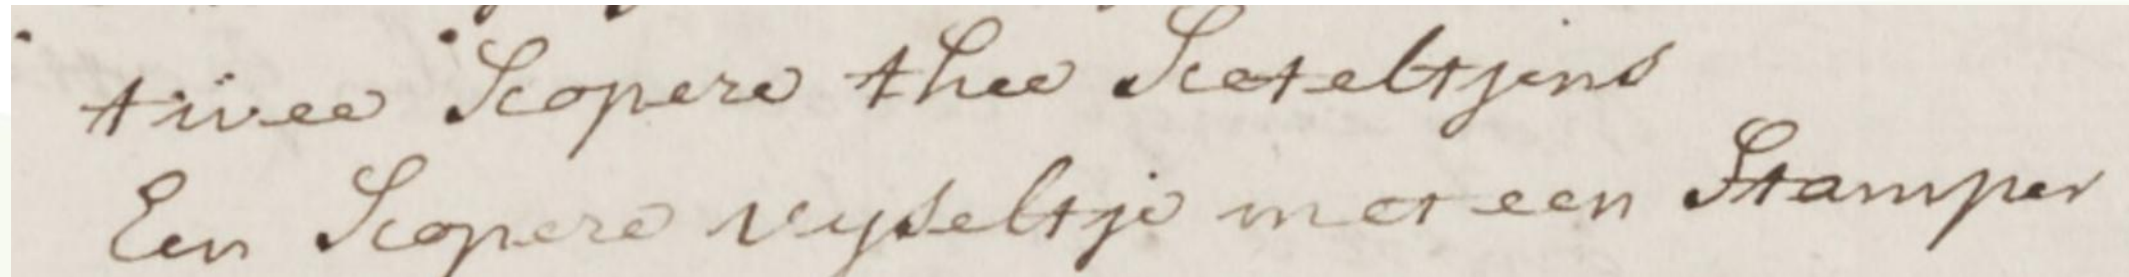 twee Kopere thee Keteltjens
Een Kopere vyseltje met een Stamper